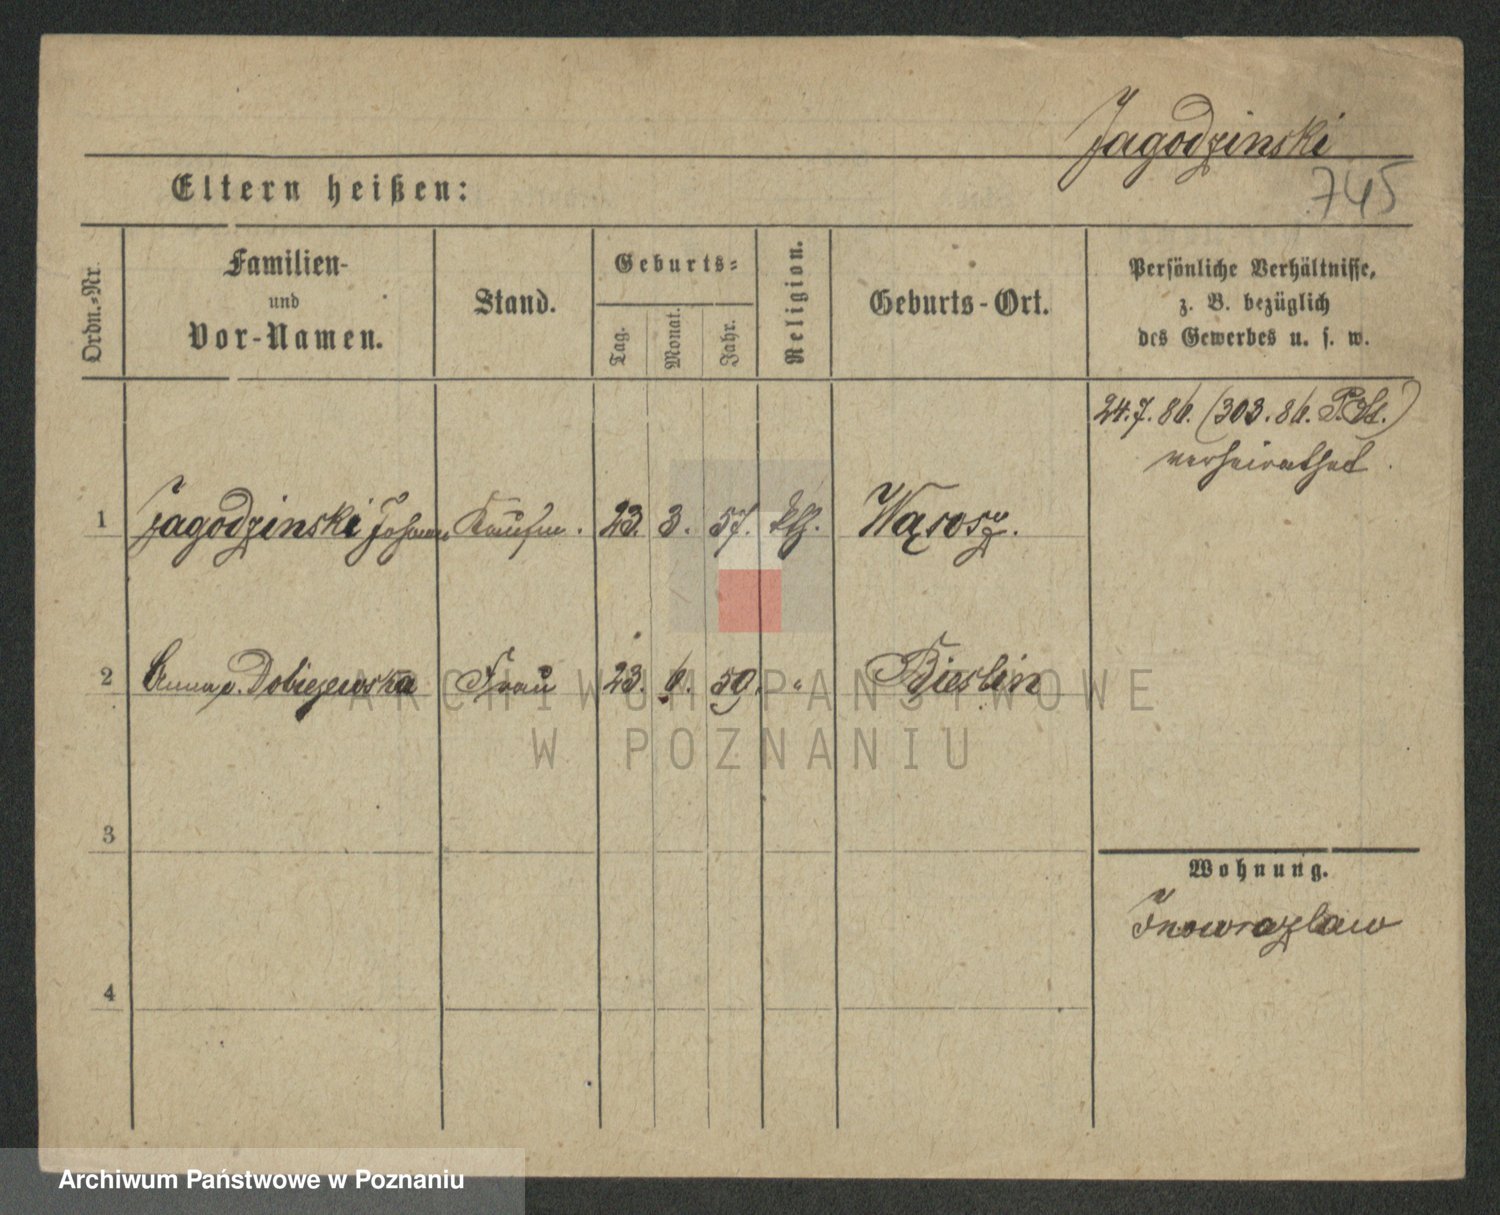 Jagodzinski
745
Eltern heißen:
Ordn.-Nr.
Familien-
und
Vor-Namen.
Stand.
Geburts-
Tag.
Monat.
Jahr.
Religion.
Geburts-Ort.
Persönliche Verhältnisse,
z. B. bezüglich
des Gewerbes u. s. w.
24.7.86. (303.86. P. St.)
verheirathet.
1 Jagodzinski Johann Kaufm. 23. 3. 57. kth. Wąrosz.
2 Anna v. Dobiejewska Frau 23. 6. 59. " Bieslin
ARCHIWUM PAŃSTWOWE
W POZNANIU
3
Wohnung.
Inowrazlaw
4
Archiwum Państwowe w Poznaniu